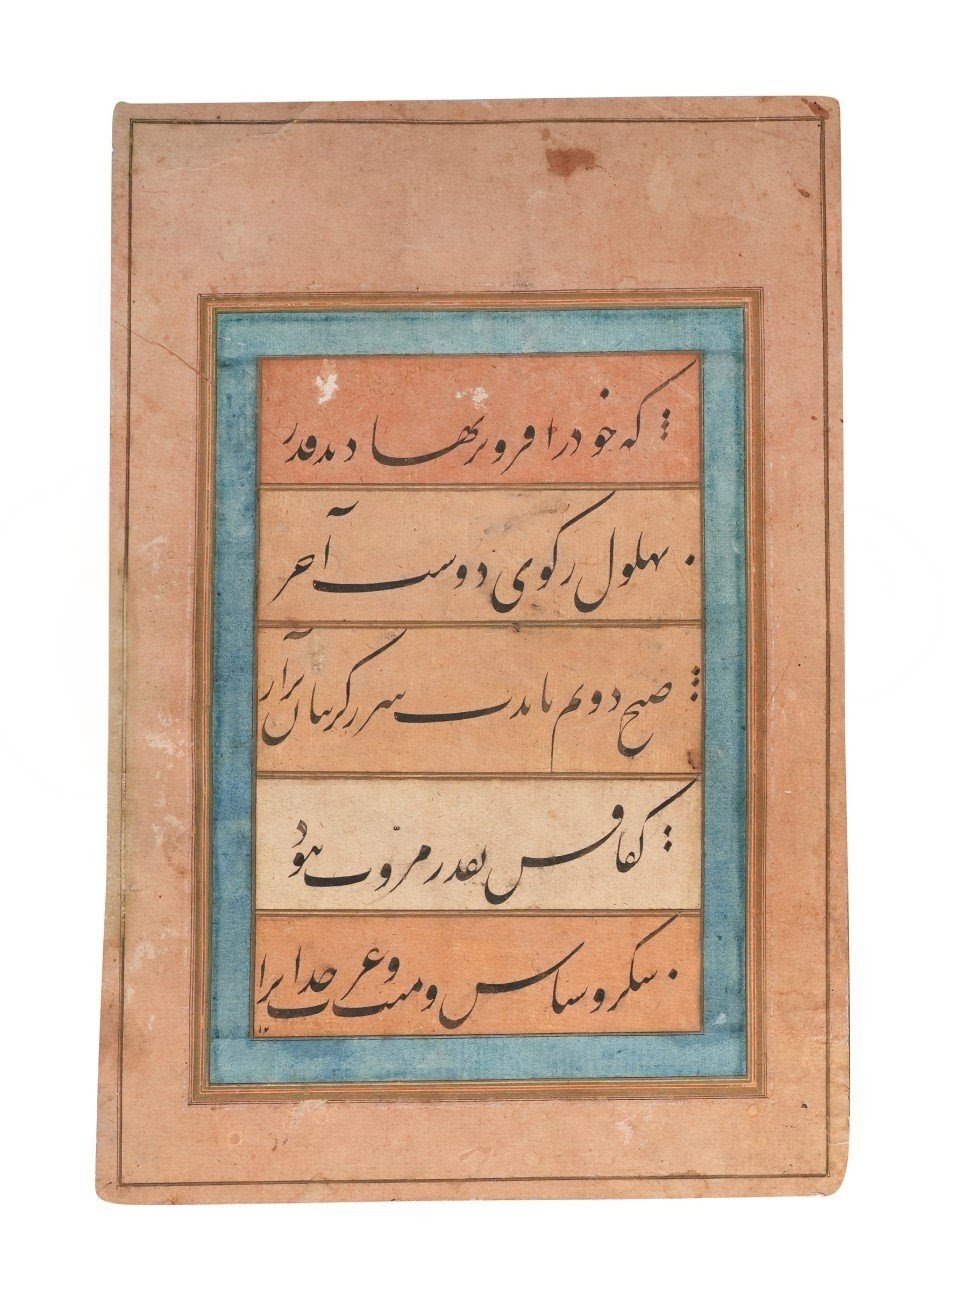 که خود را فروتر نهادند قدر
بهلول ز کوی دوست آخر
صبح دوم سر ز گریبان برآر
کفافش بقدر مروت نبود
شکر و سپاس و منت و عزت خدایرا